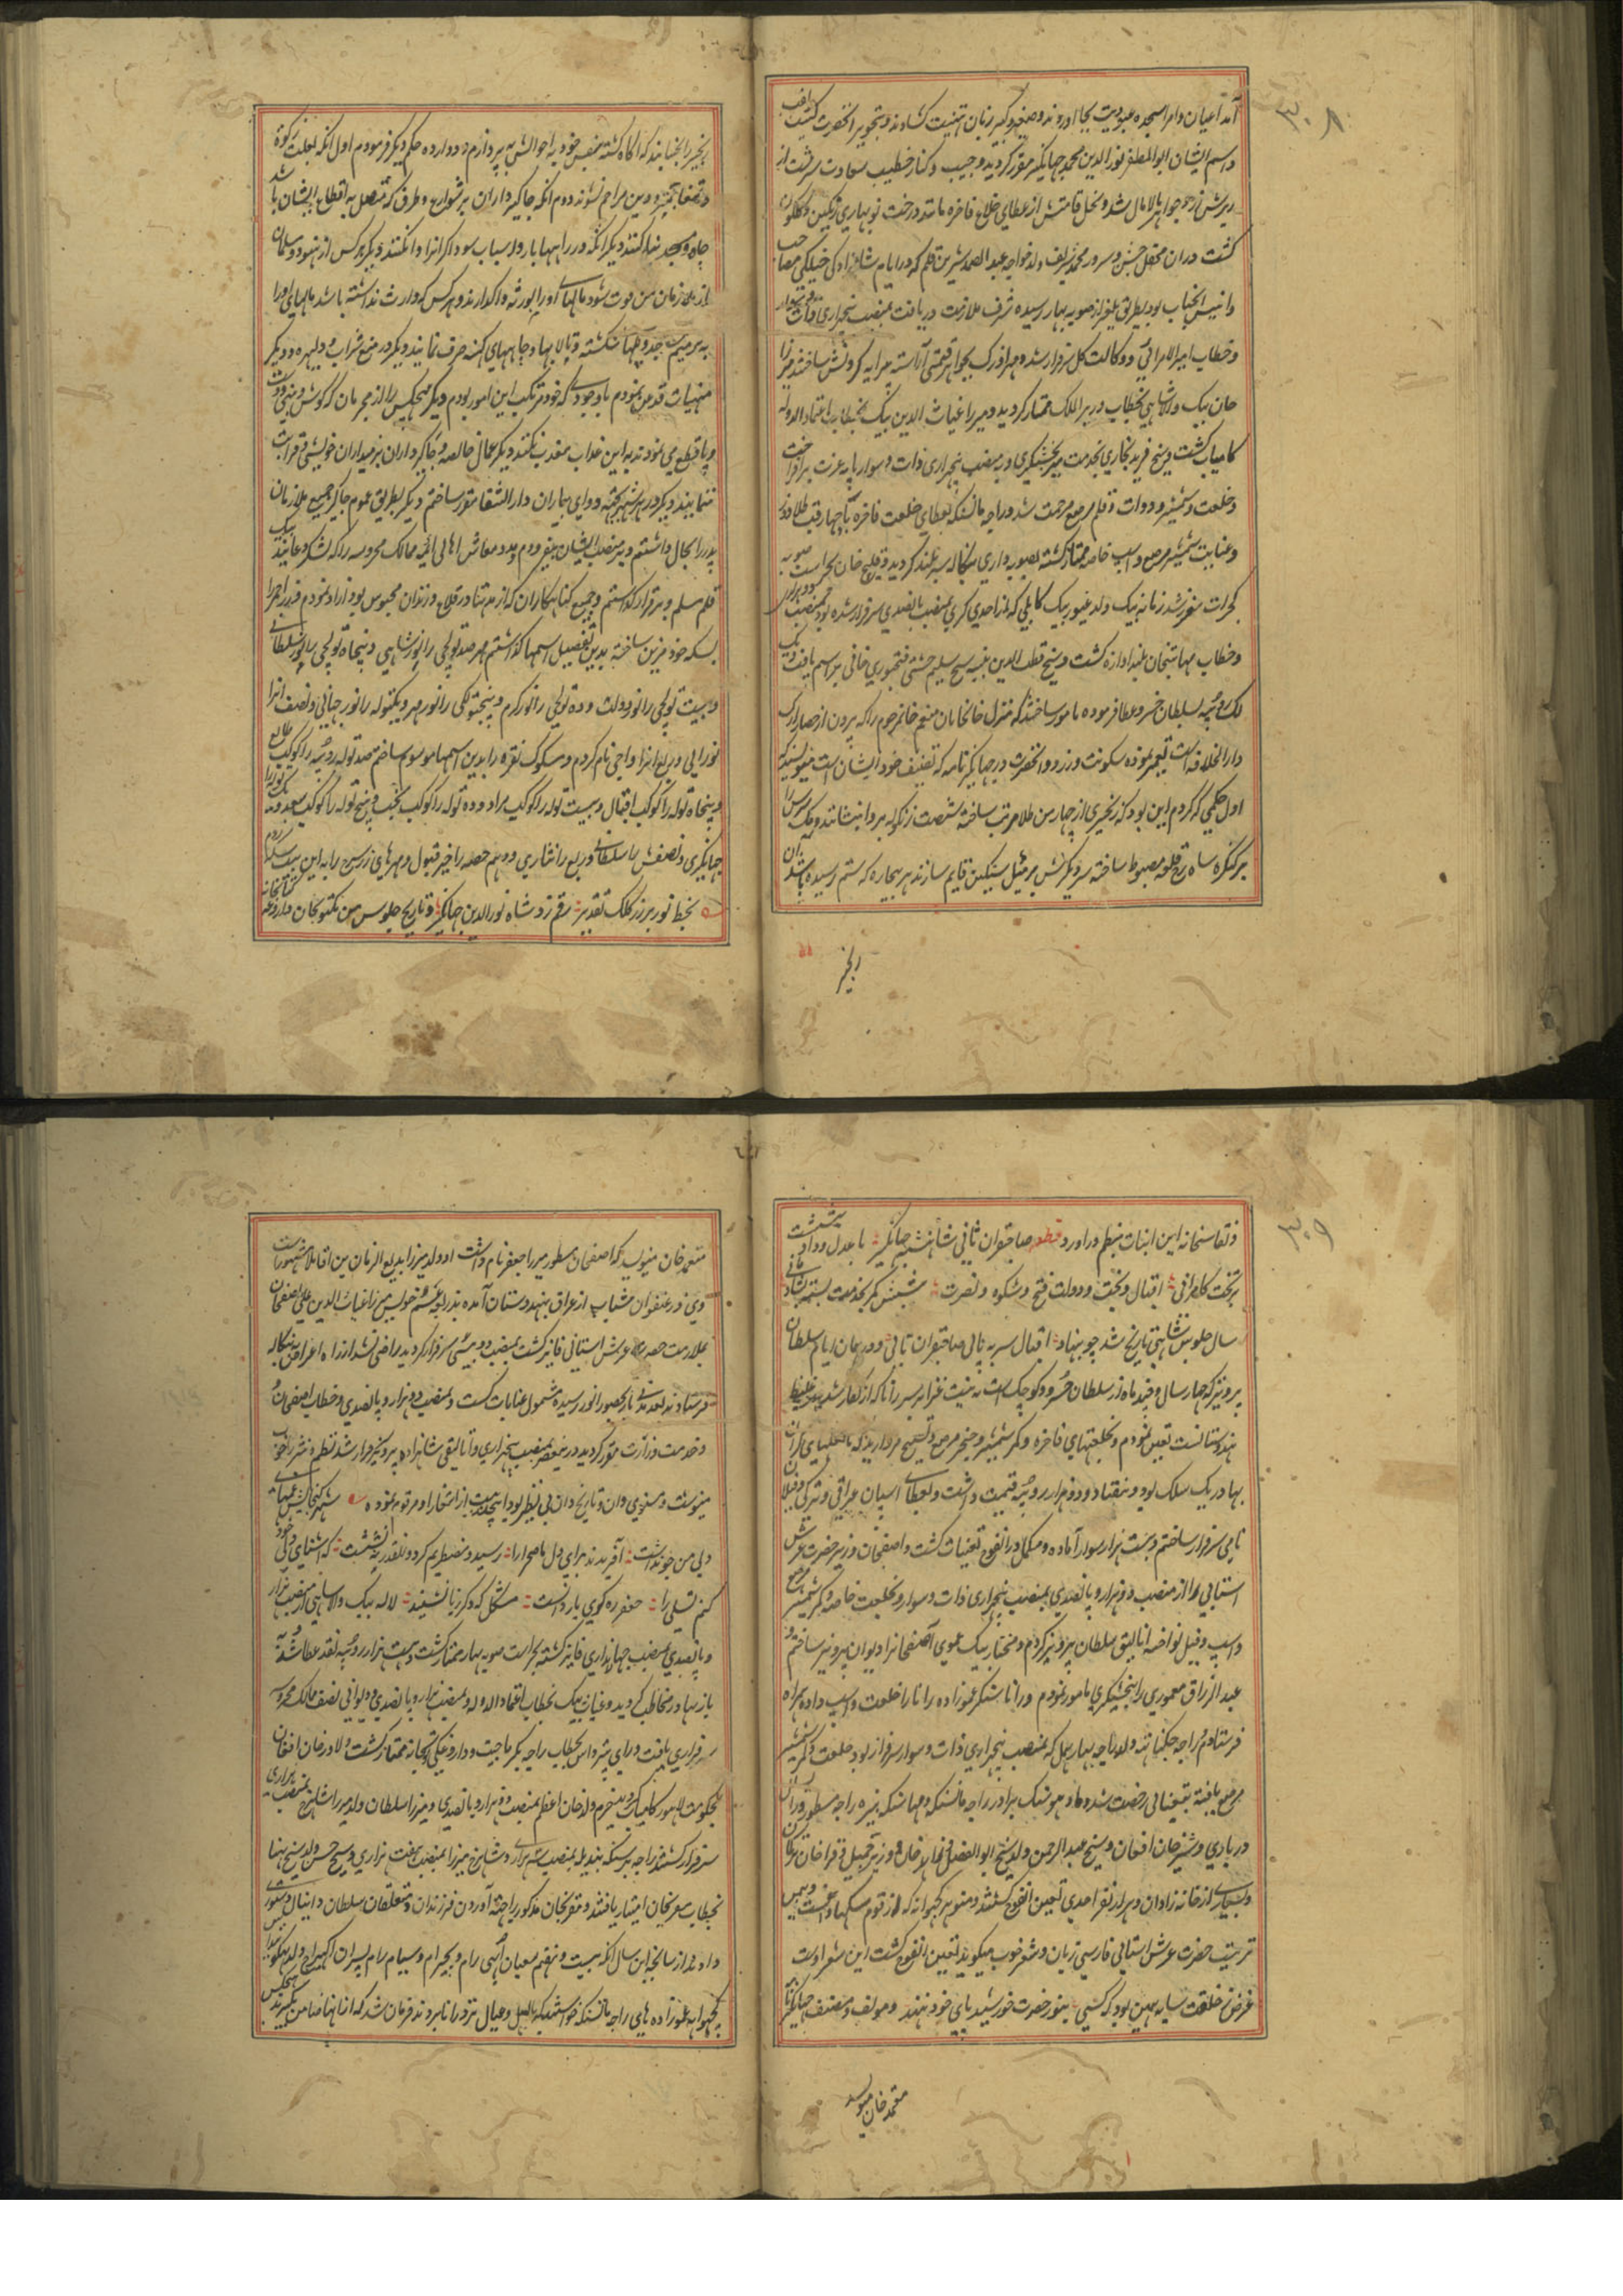 ۳۰۸
آمد اعیان و امرا سجده عبودیت بجا اوردند و صغیر و کبیر زبان تهنیت کشادند و بتجویز انحضرت کنیت
و اسم ایشان ابو المظفر نور الدین محمد جهانگیر مقرر کردید و جیب و کنار خطیب سعادت سرشت از
ریزش زر و جواهر مالامال شد و نخل قامتش از عطای خلاع فاخره مانند درخت نوبهاری رنکین و کلکون
کشت دران محفل جشن و سرور محمد شریف ولد خواجه عبد الصمد شیرین قلم که در ایام شاهزادکی خیلکی مصاحب
و انیس انجناب بود بطریق یلغر از صوبه بهار رسیده شرف ملازمت دریافت بمنصب پنجهزاری ذات
و خطاب امیر الامرائی و وکالت کل سرفراز شد و مهر اوزک بجواهر قیمتی آراسته پیرایه کردنش ساختند میرزا
جان بیک والاشاهی بخطاب وزیر الملک ممتاز کردید و میرزا غیاث الدین بیک بخطاب اعتماد الدوله
کامیاب کشت و شیخ فرید بخاری بخدمت میر بخشیکری و بمنصب پنجهزاری ذات و سوار پایه عزت برافراخت
و خلعت و شمشیر و دوات و قلم مرصع مرحمت شد و راجه مانسنکه بعطای خلعت فاخره با چهارقب طلادوز
و عنایت شمشیر مرصع و اسپ خاصه ممتاز کشته بصوبه داری بنکاله سربلند کردید و قلیج خان بحراست صوبه
کجرات معزز شد زمانه بیک ولد غیور بیک کابلی که از احدی کری بمنصب پانصدی سرفراز شده بود بمنصب دو هزار
و خطاب مهابتخان بلند اوازه کشت و شیخ قطب الدین نبیره شیخ سلیم چشتی فتحپوری خانی براسم یافت و یک
لک روپیه بسلطان خسرو عطا فرموده مامور ساختند که منزل خانخانان منعم خان مرحوم را که بیرون از حصار ارک
دار الخلافه است تعمیر نموده سکونت ورزد و انحضرت در جهانکیر نامه که تصنیف خود ایشان است مینویسند که
اول حکمی که کردم این بود که زنجیری از چهار من طلا مرتب ساخته شصت زنکوله بر و انشانند و یک سرش را
بر کنکره شاه برج قلعه مضبوط ساخته سر دیکرش بر میل سنکین قایم سازند هر بیچاره که ستم رسیده باشد ان
زنجیر
زنجیر را بجنباند که اکاه کشته بنفس خود باحوالش به پردازم و دوازده حکم دیکر فرمودم اول انکه بعلت زکوة
و تمغا بحیره و دین مزاحم نشوند دوم انکه جاکیرداران بر شوارع و طرق که متصل به اقطاع ایشان باشد
چاه و مسجد بنا کنند دیکر انکه در راهها بار و اسباب سوداکر انرا وا نکنند دیکر هر کس از هنود و مسلمان
از ملازمان من فوت شود مالهای او را بورثه واکذارند و هر کس که وارث نداشته باشد مالهای او را
به ترمیم مسجد و پلهای شکسته و تالابها و چاههای کهنه صرف نمایند دیکر در منع شراب و دلیره و دیکر
منهیات قدغن نمودم با وجودی که خود مرتکب این امور بودم دیکر هیچکس را از مجرمان که کوش و بینی و دست
و پا قطع می نمودند به این عذاب معذب نکنند دیکر عمال خالصه و جاکیرداران بزمینداران خویشی و قرابت
ننمایند دیکر در هر شهر بجهت دوای بیماران دار الشفا مقرر ساختم دیکر بطریق عموم جاکیر جمیع ملازمان
پدر را بحال داشتم و بر منصب ایشان بیفزودم و مدد معاش اهالی ائمه ممالک محروسه را که لشکر دعایند یک
قلم مسلم و برقرار کذاشتم و جمیع کناهکاران که از مدتها در قلاع و زندان محبوس بودند ازاد نمودم و زر احمر را
بسکه خود مزین ساخته بدین تفصیل اسمها کذاشتم مهر صد توله‌چی را نور شاهی و پنجاه توله‌چی را نور سلطانی
و بیست توله‌چی را نور دولت و ده توله‌چی را نور کرم و پنج تولکی را نور مهر و یکتوله را نور جهانی و نصف انرا
نورانی و ربع انرا رواجی نام کردم و مسکوک نقره را بدین اسمها موسوم ساختم صد توله روپیه را کوکب طالع
و پنجاه توله را کوکب اقبال و بیست توله را کوکب مراد و ده توله را کوکب بخت و پنج توله را کوکب سعد و یک توله را
جهانکیری و نصفش را سلطانی و ربع را نثاری و دهم حصه را خیر قبول و مهرهای زر سرخ را به این بیت سکه زدم
بخط نور بر زر کلک تقدیر رقم زد شاه نور الدین جهانکیر و تاریخ جلوس من مکتوبخان داروغه کتابخانه
۳۰۹
و نقاشخانه این ابیات بنظم در اورد قطعه صاحبقران ثانی شاهنشه جهانکیر با عدل و داد بنشست
بر تخت کامرانی اقبال و بخت و دولت فتح و شکوه و نصرت پیشش کمر بخدمت بسته بشادمانی
سال جلوس شاهی تاریخ شد چو بنهاد اقبال سر به پای صاحبقران ثانی و در همان ایام سلطان
پرویز که چهار سال و چند ماه از سلطان خسرو کوچک است به نیت غزا بر سر رانا که از کفار شدید غلیظ
هندوستانست تعین نمودم و بخلعتهای فاخره و کمر شمشیر و خنجر مرصع و تسبیح مروارید که با لعلهای کران
بها در یک سلک بود و هفتاد و دو هزار روپیه قیمت داشت و بعطای اسپان عراقی و ترکی و فیلان
نامی سرفراز ساختم و بیست هزار سوار آماده و مکمل در انفوج تعنیات کشت و اصفخان وزیر حضرت عرش
استیانی را از منصب دو هزار و پانصدی بمنصب پنجهزاری ذات و سوار و بخلعت خاصه و کمر شمشیر مرصع
و اسپ و فیل نواخته اتالیق سلطان پرویز کردم و مختار بیک عموی آصفخان را دیوان پرویز ساختم و
عبد الرزاق معموری را بخشیکری مامور نمودم و رانا سنکر عموزاده رانا را خلعت و اسپ داده همراه
فرستادم و راجه جکناتهه ولد راجه بهارمل که بمنصب پنجهزاری ذات و سوار سرفراز بود خلعت و کمر شمشیر
مرصع یافته بتعیناتی رخصت شد و مادهو سنکه برادر راجه مانسنکه و مها سنکه نبیره راجه مسطور و رای
درباری و شیر خان افغان و شیخ عبد الرحمن ولد شیخ ابو الفضل و وزیر جمیل و قرا خان ترکمان
و بسیاری از خانه زادان و هزار نفر احدی تعین انفوج کشتند و منوهر کچهواهه که از قوم سکهاوتست و بیمن
تربیت حضرت عرش استیانی فارسی زبان و شعر خوب میکوید تعین انفوج کشت این شعر اوست
غرض ز خلقت سایه همین بود که کسی بنور حضرت خورشید پای خود ننهد و مولف و مصنف جهانکیرنامه
معتمد خان مینویسد
معتمد خان مینویسد که اصفخان مسطور میرزا جعفر نام داشت او ولد میرزا بدیع الزمان بن اقا ملا مشهور است
وی در عنفوان شباب از عراق بهندوستان آمده بذریعه عم خویش میرزا غیاث الدین علی اصفخان
بملازمت حضرت عرش استیانی فایز کشت بمنصب دو بیستی سرفراز کردید راضی نشد ازین راه اعراض به بنکاله
فرستادند بعد مدتی باز بحضور انور رسیده مشمول عنایات کشت و بمنصب دو هزار و پانصدی و خطاب اصفخان
و خدمت وزارت مقرر کردید درینعصر بمنصب پنجهزاری و اتالیقی شاهزاده پرویز سرفراز شد نظم و نثر را خوب
مینوشت و مثنوی دان و تاریخ دان بی نظیر بود اینچند بیت از اشعار او مرقوم نموده
ولی من جو نداشت آفریدند برای دل ما صحرا را رسید و مضطربم کرد و آنقدر ننشست که اشنای دل خود
کنم تسلی را جعفر ره کوی یار دانست مشکل که دکر ز پا نشیند لاله بیک والاشاهی از منصب هزار
و پانصدی بمنصب چهار هزاری فایز کشته بحراست صوبه بهار ممتاز کشت و بیست هزار روپیه نقد عطا شد
باز بهادر مخاطب کردید و غیاث بیک بخطاب اعتماد الدوله و بمنصب هزار و پانصدی و دیوانی نصف ممالک محروسه
سرفرازی یافت و رای پترداس بخطاب راجه بکرماجیت و داروغکی توپخانه ممتاز کشت و لادر خان افغان
بحکومت لاهور کامیاب کردید خرم ولد خان اعظم بمنصب دو هزار و پانصدی و میرزا سلطان ولد میرزا شاهرخ بمنصب هزاری
سرفراز کشتند راجه برسنکه بندیله بمنصب سه هزاری و شاهرخ میرزا بمنصب هفت هزاری و شیخ حسن ولد شیخ بهنا
بخطاب مقربخان امتیاز یافتند و مقربخان مذکور را جهت آوردن فرزندان و متعلقان سلطان دانیال دستوری
داد و از سانحه این سال انکه بیست و هفتم شعبان ابهی رام و بجیرام و سیام رام پسران اکهیراج ولد بهکوانداس
کچهواهه عموزاده های راجه مانسنکه خواستند که با اهل و عیال نزد رانا بروند فرمان شد که از انها ضامن بکیرند هیچکس